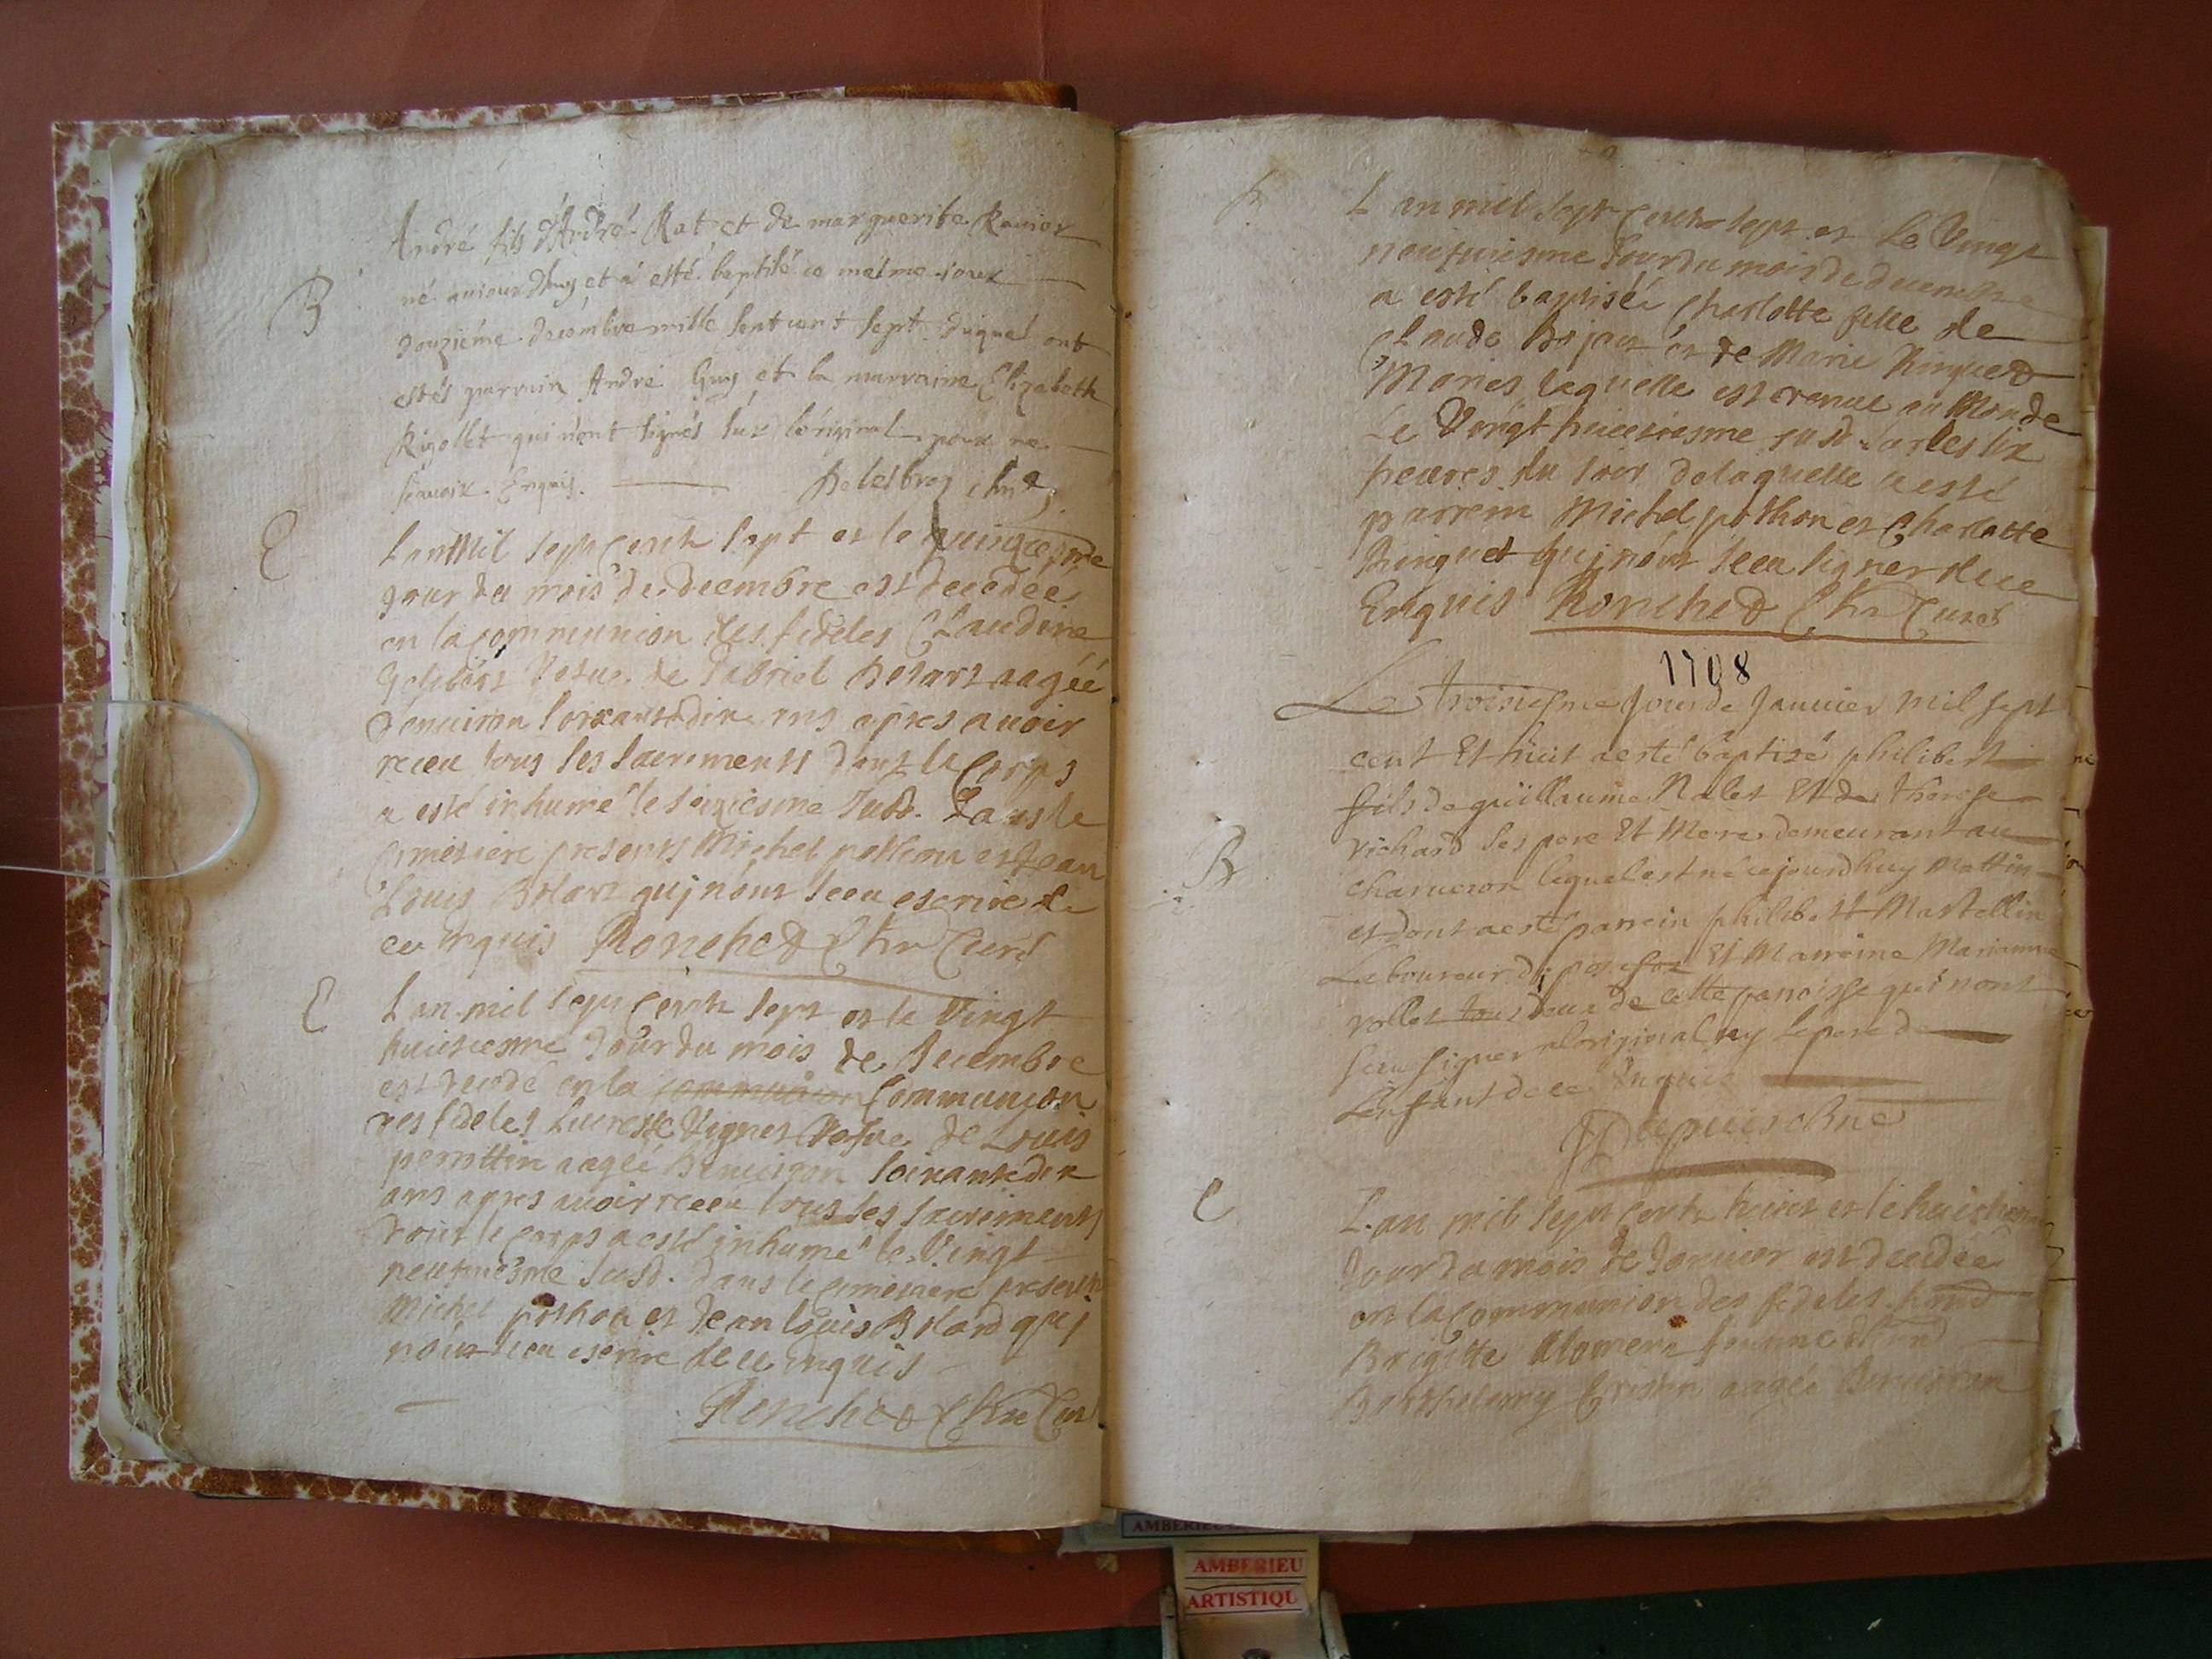 B
André fils d'André Rat et de marguerite Ravier
né aujourdhuy et à esté baptisé ce mesme jour
douziéme decembre mille sept cent sept duquel ont
estés parrain André Guy et la marraine Elizabeth
Rigollet qui n'ont signés sur l'original pour ne
scavoir Enquis.
E
L an Mil sept cent sept et le quinzesme
Jour du mois de decembre est decedée
en la communion des fideles Claudine
vefve de Gabriel Bolart aagéé
d'enuiron soixante dix ans apres avoir
receu tous ses sacrements dont le Corps
a esté inhumé le seiziesme susd. dans le
Cimetiere presents Michel pothon et Jean
Louis Bolart quj n'ont sceu escrire de
ce enquis Ronchet Curé
E
L an mil sept cent sept et le Vingt
huictiesme Jour du mois de Decembre
est decedé en la communion Communion
des fideles Lucresse Vignet Vefve de Louis
perrettin aagéé d'enuiron soixante dix
ans apres auoir receu tous ses sacrements
dont le Corps a esté inhumé le Vingt
neufuiesme susd. dans le cimetiere presents
Michel pothon et Jean Louis Bolard quj
n'ont sceu escrire de ce enquis
Ronchet Curé
B
L an mil sept Cent sept et Le Vingt
neufuiesme Jour du mois de decembre
a esté baptiséé Charlotte fille de
Claude Bojat et de Marie Ringuet
Maries laquelle est venue au Monde
Le Vingt huictiesme susd. sur les six
heures du soir de laquelle a esté
parrein Michel pothon et Charlotte
Ringuet quj n'ont sceu signer de ce
Enquis Ronchet Curé
1708
Le troisiesme Jour de Januier mil sept
B
cent Et huit a esté baptizé philibert
fils de guillaume Nalet Et de therese
richard ses pere Et Mere demeurant au
charueron lequel est né cejourdhuy Mattin
et dont a esté parrein philibert Martellin
Laboureur Et Marreine Marianne
rollet tous deux de cette parroisse qui nont
sceu signer aloriginal ny le pere de
Lenfant de ce Enquis
Dupuis
E
L.an mil sept cent huict et le huictiesme
Jour du mois de Januier est decedée
en la communion des fideles
Brigitte femme
Barthelemy aagéé d'enuiron
AMBERIEU
AMBERIEU
ARTISTIQU